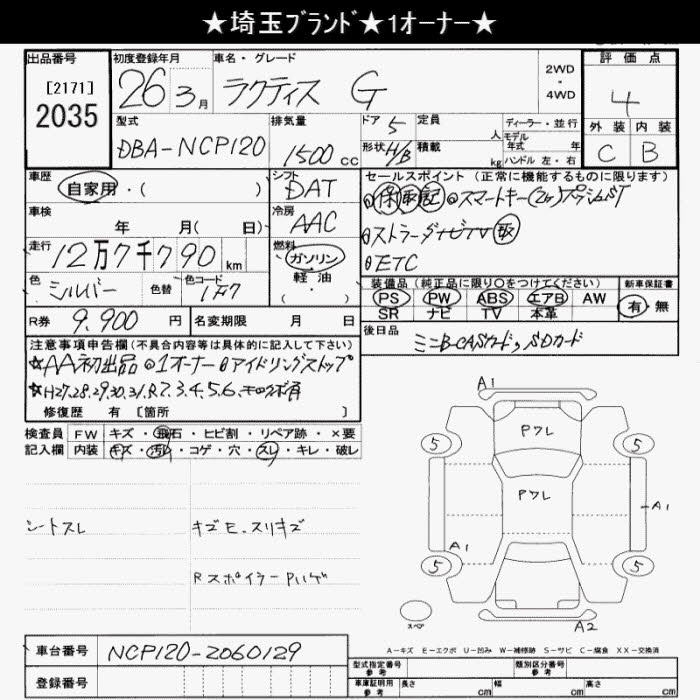 ★埼玉ﾌﾞﾗﾝﾄﾞ★1オーナー★
出品番号
[2171]
2035
初度登録年月
26 3月
車名・グレード
ラクティス G
2WD
・
4WD
評価点
4
外装 内装
C B
型式
DBA-NCP120
排気量
1500 cc
ドア 5
形状 H/B
定員 人
積載 kg
ディーラー・並行
モデル年式 年
ハンドル 左・右
車歴
自家用・( )
シフト
DAT
セールスポイント (正常に機能するものに限ります)
保 取 記 スマートキー(2ヶ)プッシュST
ストラーダナビTV 取
ETC
車検
年 月( 日)
冷房
AAC
走行
12万7千790 km
燃料
ガソリン
軽油
・
色
シルバー
色替
色コード
1F7
装備品 (純正品に限り○をつけてください)
PS PW ABS エアB AW
SR ナビ TV 本革
新車保証書
有・無
R券
9,900 円
名変期限 月 日
後日品
ミニB-CASカード, SDカード
注意事項申告欄(不具合内容等は具体的に記入して下さい)
☆AA初出品 1オーナー アイドリングストップ
☆H27.28.29.30.31.R.2.3.4.5.6.
修復歴 有 [箇所 ]
検査員
記入欄
FW キズ・飛石・ヒビ割・リペア跡・×要
内装 キズ・汚レ・コゲ・穴・スレ・キレ・破レ
シートスレ
キズE.スリキズ
Rスポイラー Pハゲ
A1
Pフレ
5 5
Pフレ
A1
A1
5 5
スペア
A2
A-キズ E-エクボ U-凹み W-補修跡 S-サビ C-腐食 XX-交換済
車台番号
NCP120-2060129
登録番号
型式指定番号
参考
類別区分番号
参考
車庫証明用
参考
長さ cm
幅 cm
高さ cm